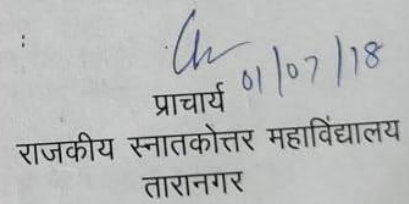 :
01/07/18
प्राचार्य
राजकीय स्नातकोत्तर महाविद्यालय
तारानगर